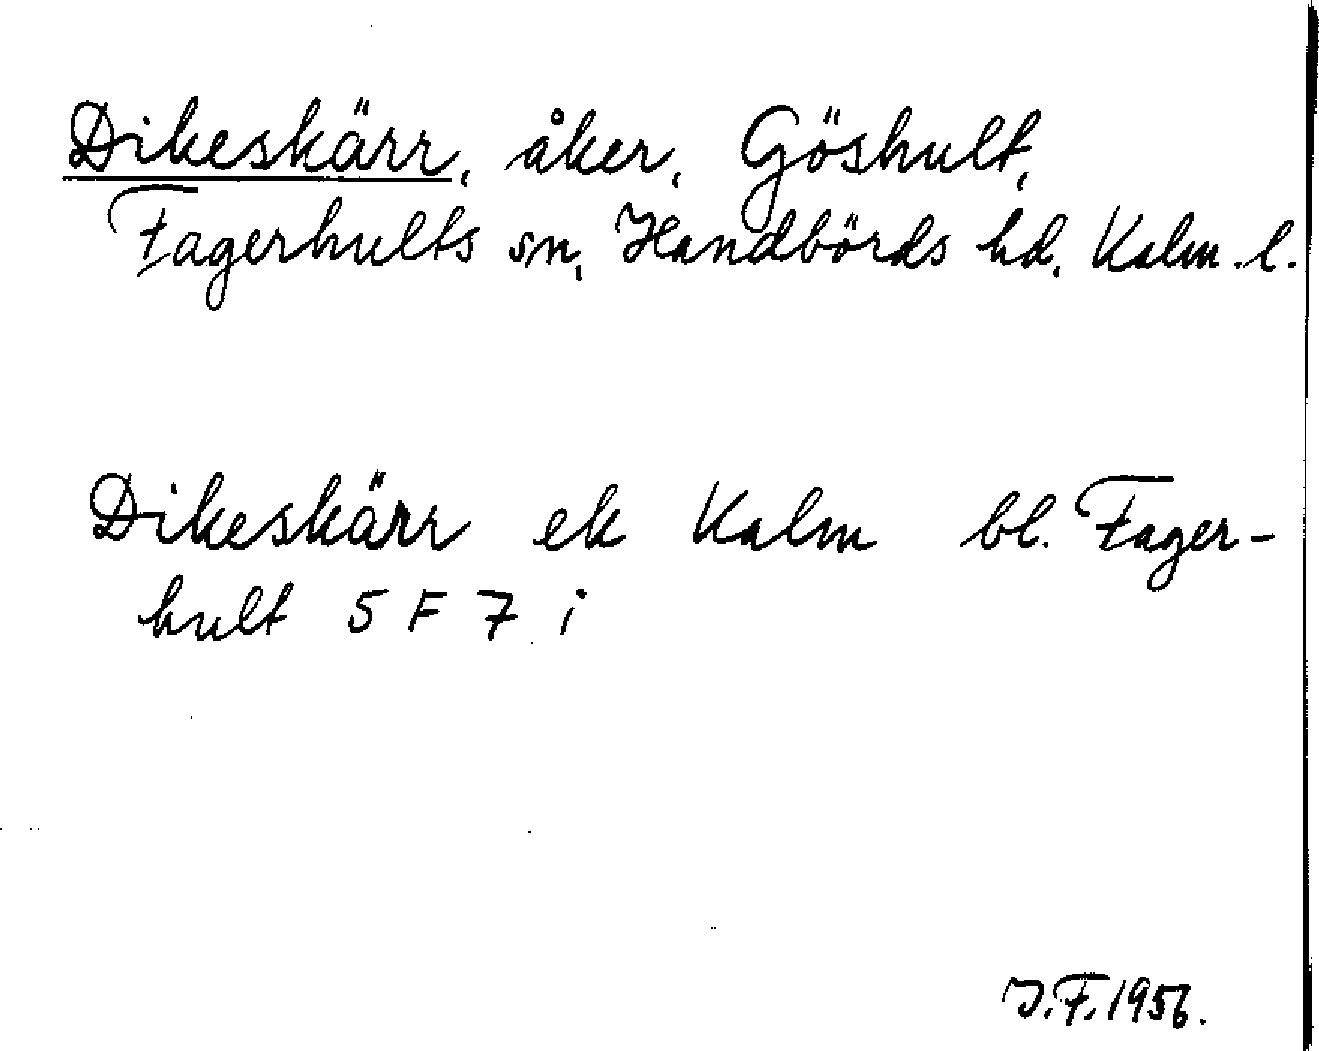 Dikeskärr, åker, Göshult,
Fagerhults sn, Handbörds hd, Kalm. l.
Dikeskärr ek Kalm bl. Fager-
hult 5 F 7 i
J.F. 1956.